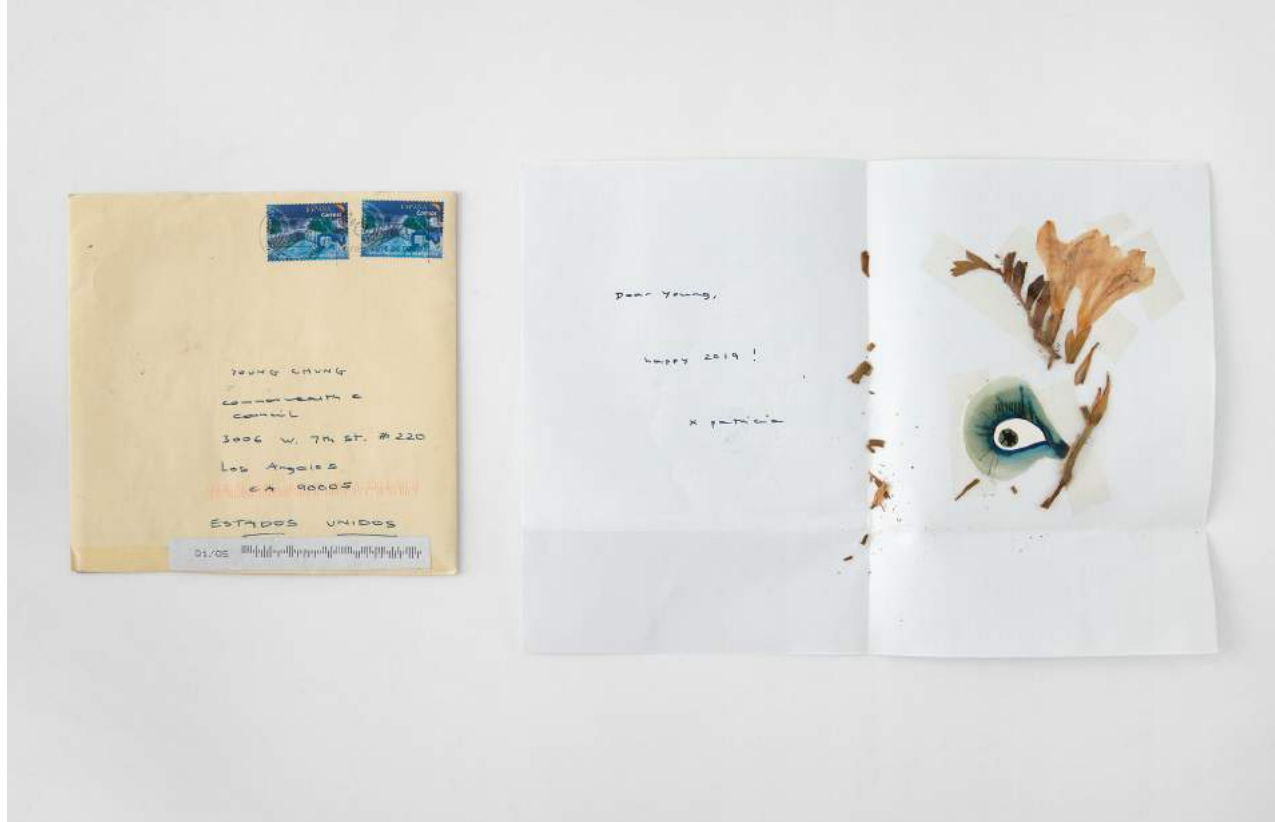 ESPAÑA
Correos
ESPAÑA
Correos
YOUNG CHUNG
commonwealth &
council
3006 W. 7th St. #220
Los Angeles
CA 90005
ESTADOS UNIDOS
01/05
Dear Young,
happy 2019!
x patricia